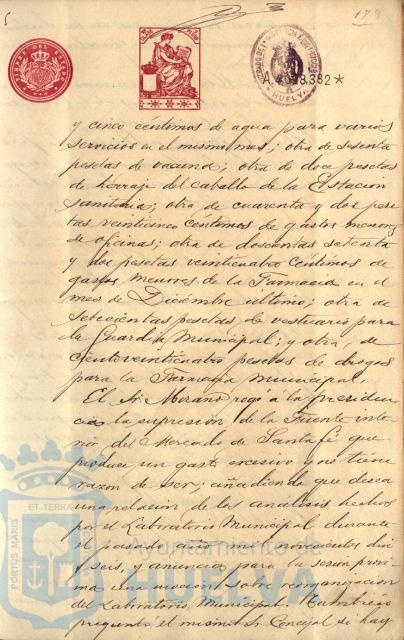 179
TIMBRE DEL ESTADO
A.2013.382*
HUELVA
y cinco céntimos de agua para varios
servicios en el mismo mes; otra de sesenta
pesetas de vacuna; otra de doce pesetas
de herraje del caballo de la Estacion
Sanitaria; otra de cuarenta y dos pese
tas veinticinco céntimos de gastos menores
de oficinas; otra de doscientas setenta
y dos pesetas veinticuatro céntimos de
gastos menores de la Farmacia en el
mes de Diciembre ultimo; otra de
setecientas pesetas de vestuario para
la Guardia Municipal; y otra, de
ciento veinticuatro pesetas de drogas
para la Farmacia Municipal.
El Sr. Morano rogó a la presiden
cia la supresión de la Fuente inte
rior del Mercado de Santa Fé que
produce un gasto excesivo y no tiene
razón de ser; añadiendo que desea
una relación de los análisis hechos
por el Laboratorio Municipal durante
el pasado año mil novecientos diez
y seis, y anuncia para la sesión próxi
ma una mocion sobre reorganizacion
del Laboratorio Municipal. Tambien
preguntó el mismo Sr. Concejal se hay
PORTUS MARIS ET TERRAE CUSTODIA
Ayuntamiento de
HUELVA